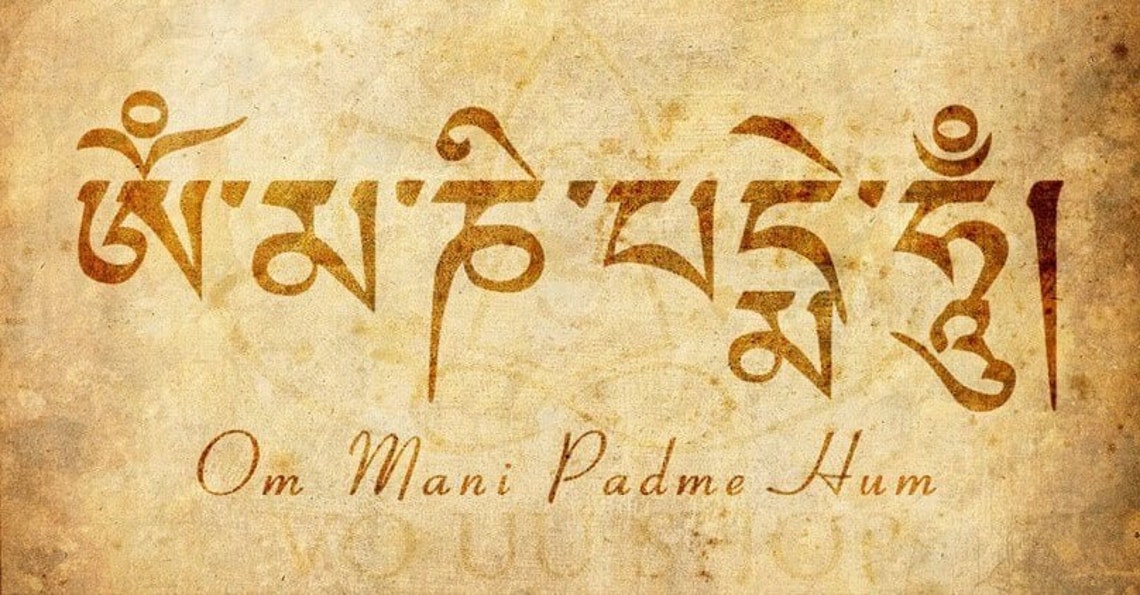 ཨོཾ་མ་ཎི་པདྨེ་ཧཱུྃ།
Om Mani Padme Hum
SHOP